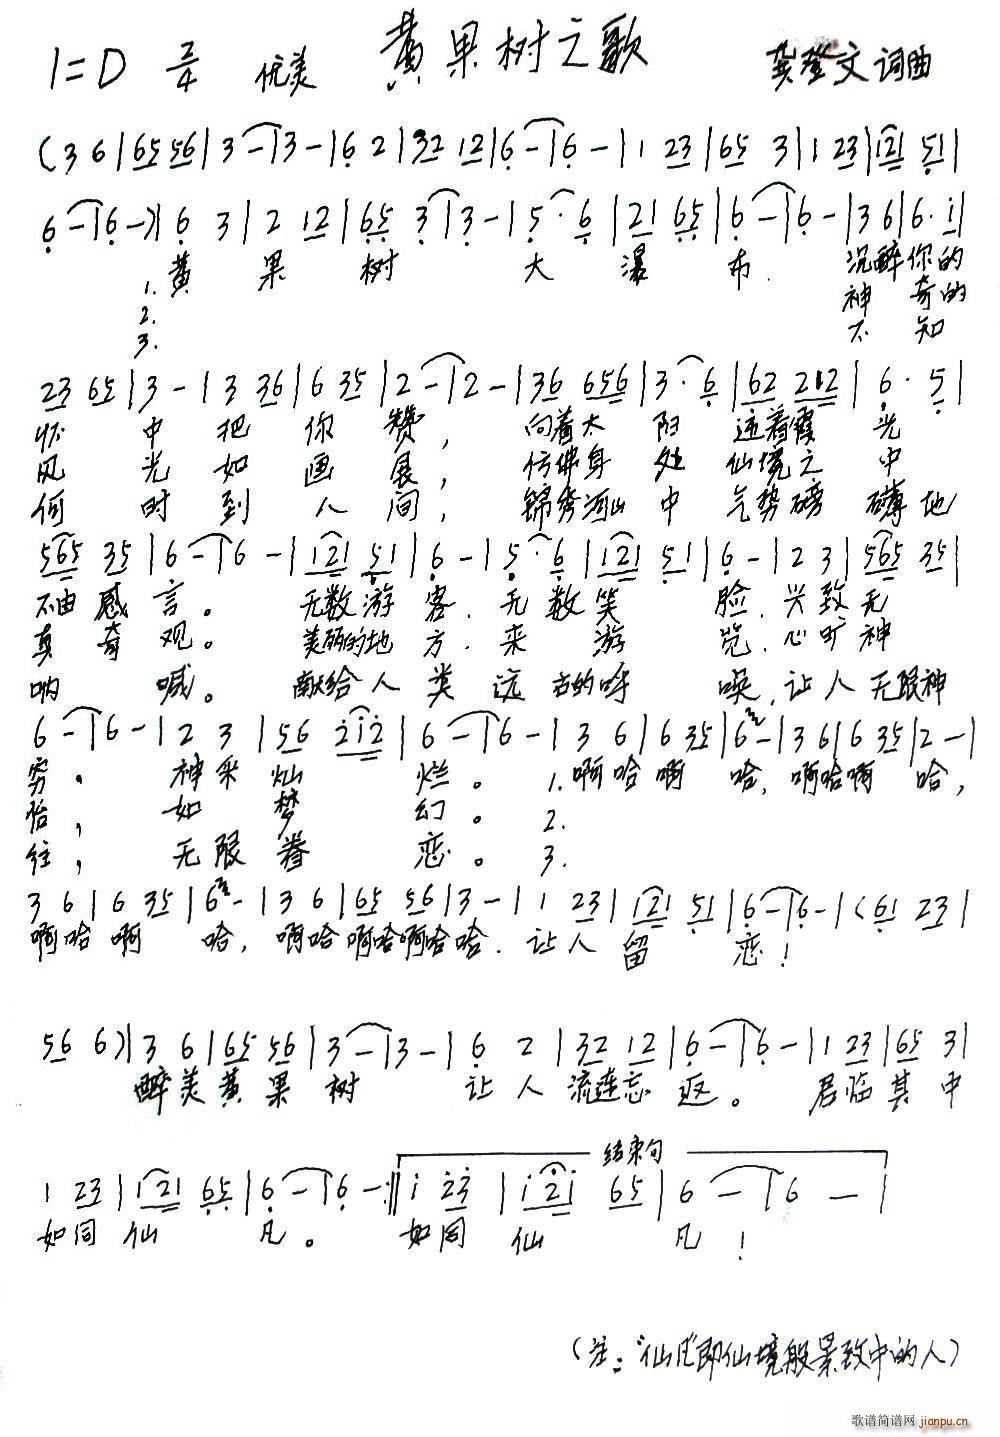 1=D 2/4 优美 黄果树之歌 龚登文词曲
(3 6|65 56|3 -|3 -|6 2|32 12|6 -|6 -|1 23|65 3|1 23|121 51|
6 -|6 -)|6 3|2 12|65 3|3 -|5· 6|21 65|6 -|6 -|3 6|6· i|
1. 黄果树大瀑布. 沉醉你的
2. 神奇的
3. 不知
23 65|3 -|3 36|6 35|2 -|2 -|36 656|3· 6|62 212|6· 5|
怀中把你赞, 向着太阳迎着霞光
风光如画展, 仿佛身处仙境之中
何时到人间, 锦秀河山中气势磅礴地
565 35|6 -|6 -|121 51|6 -|5· 6|121 51|6 -|2 3|565 35|
不由感言。 无数游客. 无数笑脸. 兴致无
真奇观。 美丽的地方. 来游览. 心旷神
呐喊。 献给人类远古的呼唤, 让人无限神
6 -|6 -|2 3|56 212|6 -|6 -|3 6|6 35|6 -|3 6|6 35|2 -|
穷。 神采灿烂。 1. 啊哈啊哈, 啊哈啊哈,
怡, 如梦幻。 2.
往, 无限眷恋。 3.
3 6|6 35|6 -|3 6|65 56|3 -|1 23|121 51|6 -|6 -|(61 23|
啊哈啊哈, 啊哈啊哈啊哈哈. 让人留恋!
56 6)|3 6|65 56|3 -|3 -|6 2|32 12|6 -|6 -|1 23|65 3|
醉美黄果树 让人流连忘返。 君临其中
结束句
1 23|121 65|6 -|6 -:‖i 23|i2i 65|6 -|6 -|
如同仙凡。 如同仙凡!
(注:“仙凡”即仙境般景致中的人)
歌谱简谱网 jianpu.cn